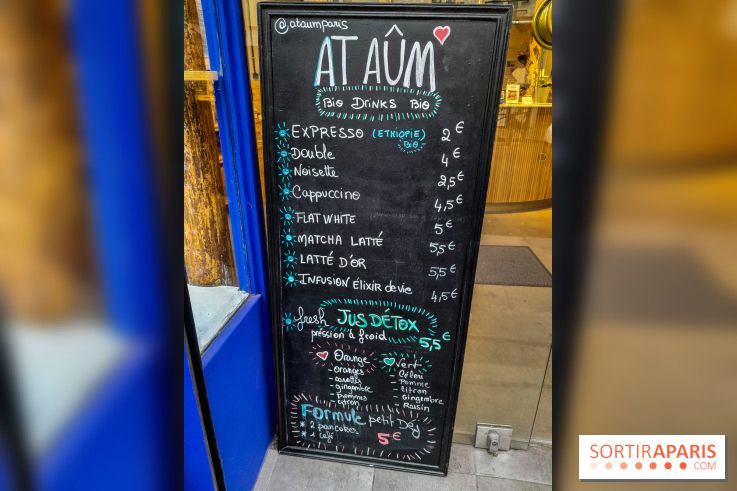 @ataumparis
AT AÛM
Bio DRiNKS Bio
EXPRESSO (ETHIOPIE) BIO 2€
Double 4€
Noisette 2,5€
Cappuccino 4,5€
FLAT WHITE 5€
MATCHA LATTÉ 5,5€
LATTÉ D'OR 5,5€
INFUSION ÉLIXIR de vie 4,5€
fresh JUS DÉTOX
pression à froid 5,5€
Orange
oranges
- carotte
- gingembre
- pommes
- citron
Vert
- Céleri
- Pomme
- citron
- Gingembre
- Raisin
FORMULE petit Dej
* 2 pancakes
* 1 café 5€
SORTIRAPARIS
.COM